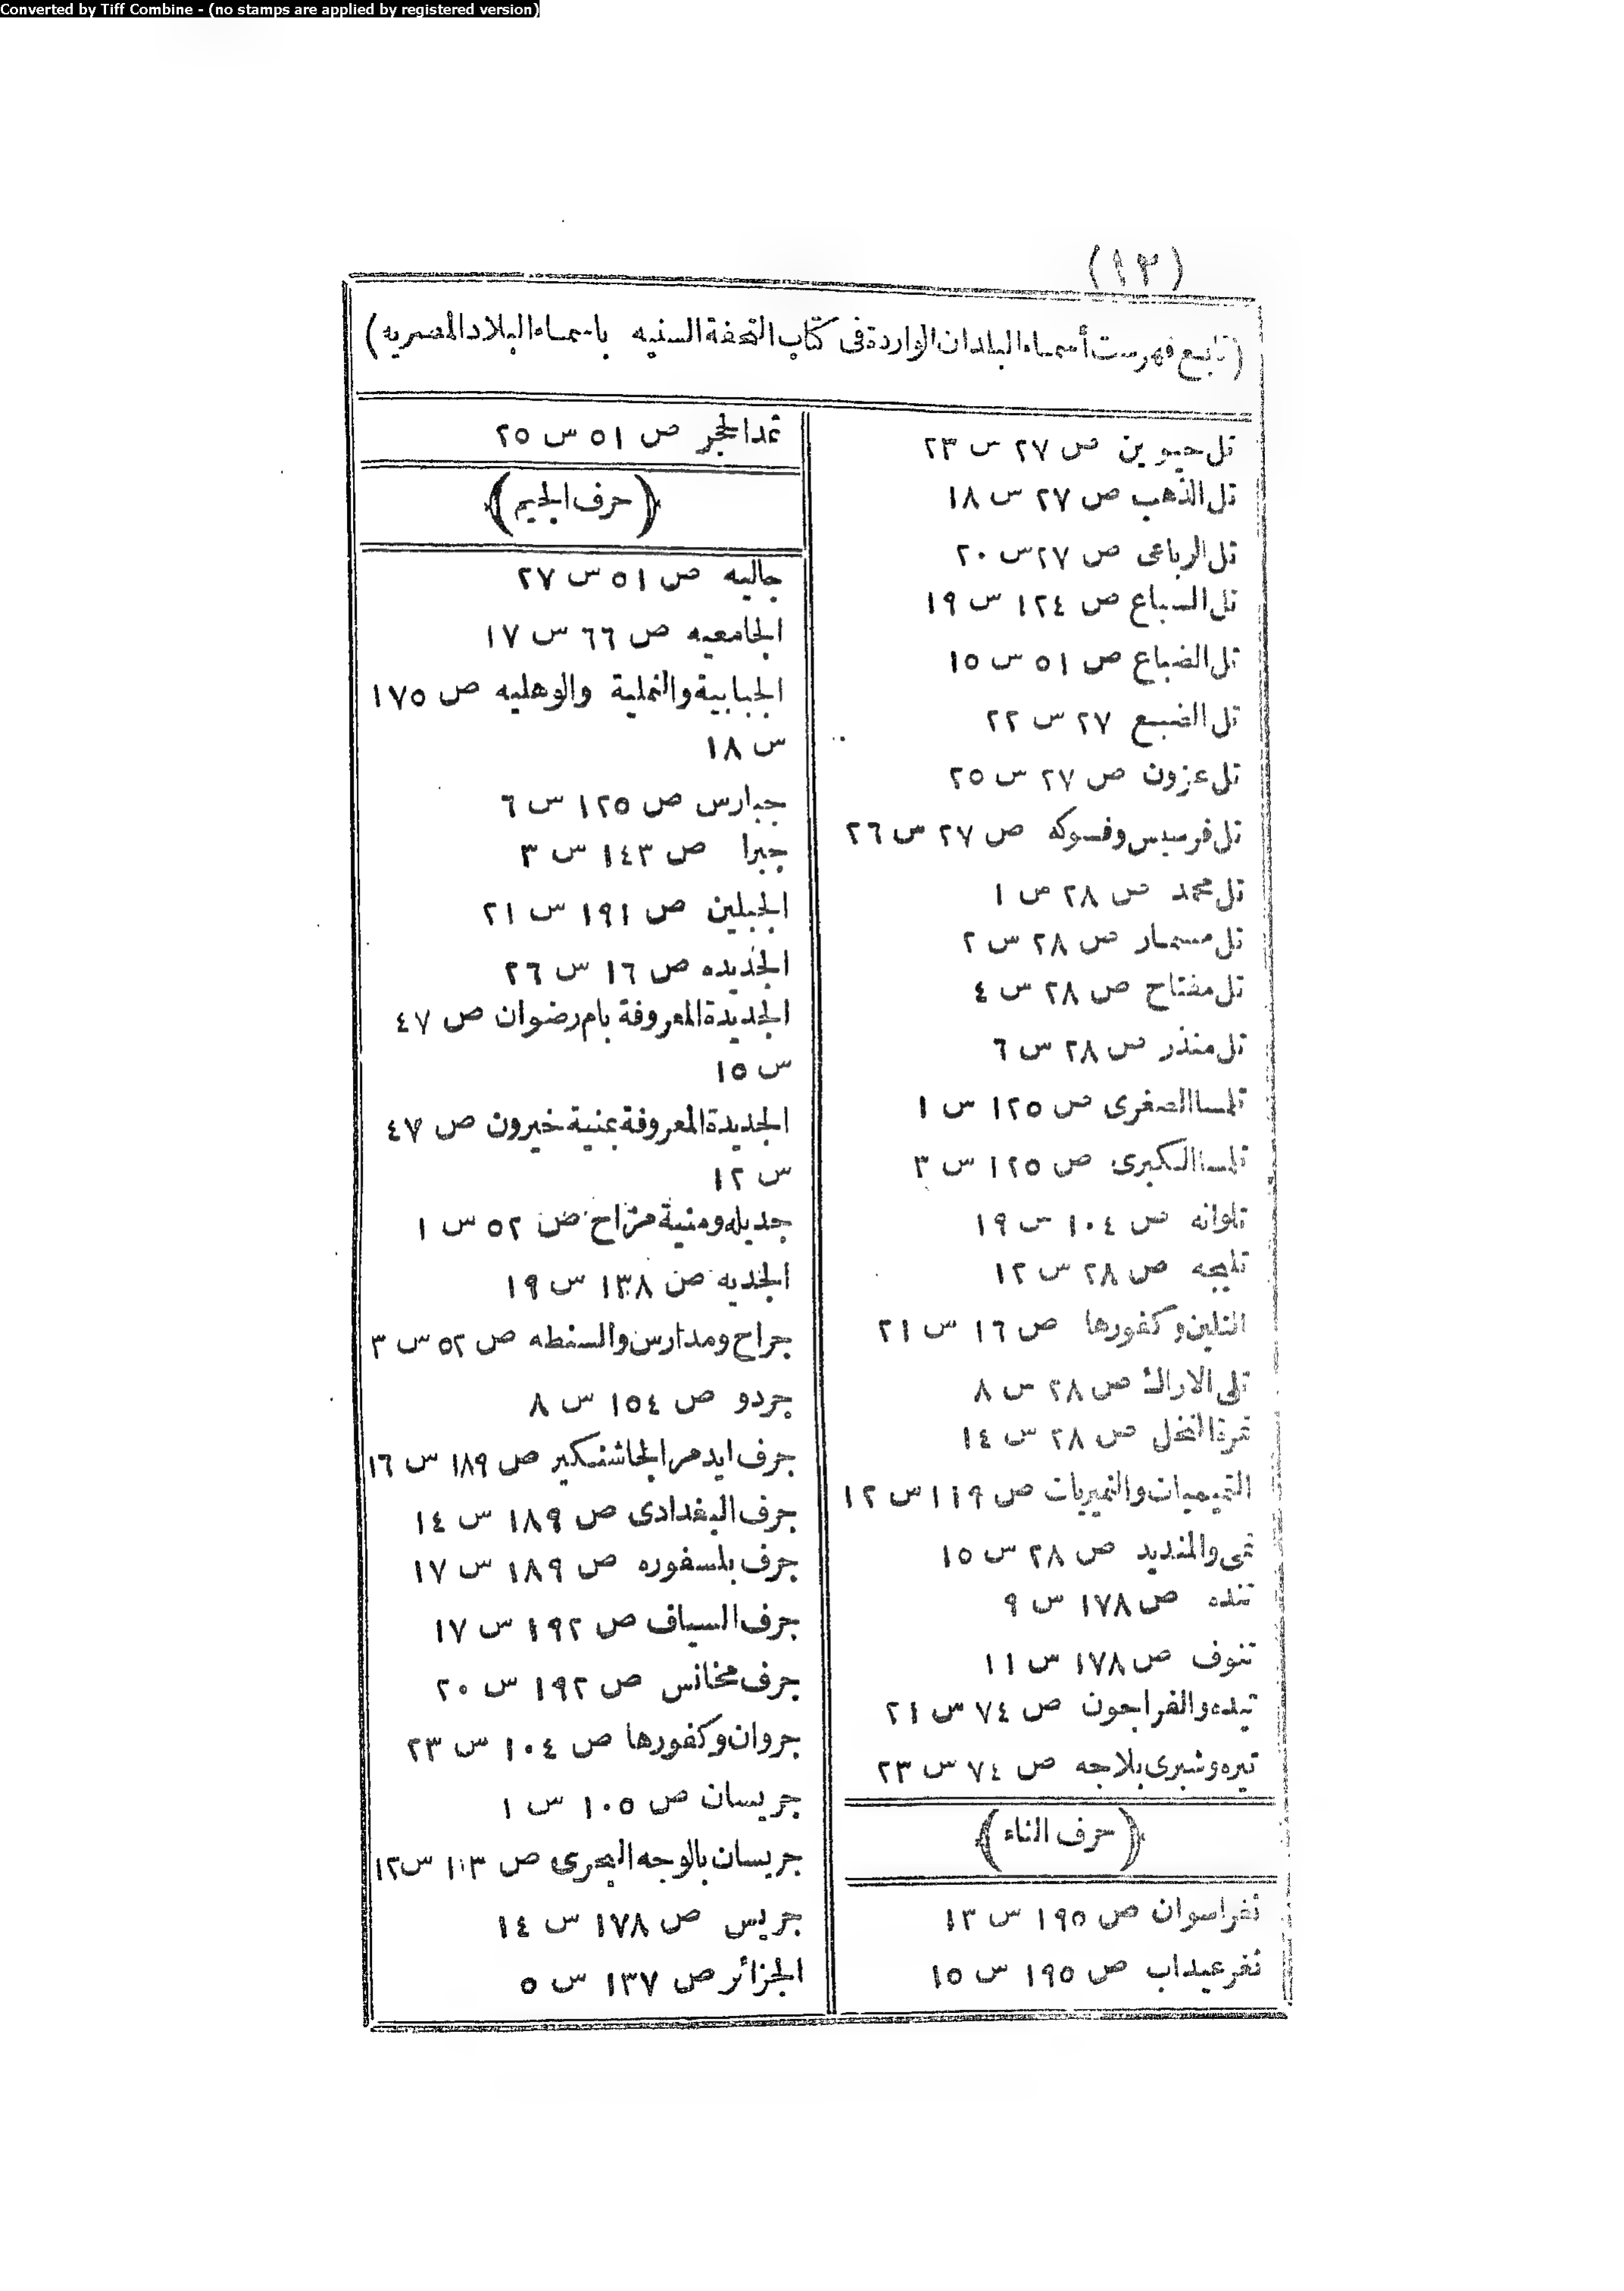 Converted by Tiff Combine - (no stamps are applied by registered version)
(١٢)
(تابع فهرست أسماء البلدان الواردة فى كتاب التحفة السنيه باسماء البلاد المصريه)
تل حيوين ص ٢٧ س ٢٣
تل الذهب ص ٢٧ س ١٨
تل الرباعى ص ٢٧ س ٢٠
تل السباع ص ١٢٤ س ١٩
تل الضباع ص ٥١ س ١٥
تل الضبع ٢٧ س ٢٢
تل عزون ص ٢٧ س ٢٥
تل فرسيس وفسوكه ص ٢٧ س ٢٦
تل محمد ص ٢٨ ص ١
تل مسمار ص ٢٨ س ٢
تل مفتاح ص ٢٨ س ٤
تل منذر ص ٢٨ س ٦
تلمسا الصغرى ص ١٢٥ س ١
تلمسا الكبرى ص ١٢٥ س ٣
تلوانه ص ١٠٤ س ١٩
تليجه ص ٢٨ س ١٢
التلين وكفورها ص ١٦ س ٢١
تلى الاراك ص ٢٨ س ٨
تمرة النخل ص ٢٨ س ١٤
التميميات والنميريات ص ١١٩ س ١٢
تمى والمنديد ص ٢٨ س ١٥
تنده ص ١٧٨ س ٩
تنوف ص ١٧٨ س ١١
تيده والفراجون ص ٧٤ س ٢١
تيره وشبرى بلاجه ص ٧٤ س ٢٣
(حرف الثاء)
ثغر اسوان ص ١٩٥ س ١٣
ثغر عيداب ص ١٩٥ س ١٥
ثمد الحجر ص ٥١ س ٢٥
(حرف الجيم)
جاليه ص ٥١ س ٢٧
الجامعيه ص ٦٦ س ١٧
الجبابية والنملية والوهليه ص ١٧٥
س ١٨
جبارس ص ١٢٥ س ٦
جبرا ص ١٤٣ س ٣
الجبلين ص ١٩١ س ٢١
الجديده ص ١٦ س ٢٦
الجديدة المعروفة بام رضوان ص ٤٧
س ١٥
الجديدة المعروفة بمنية خيرون ص ٤٧
س ١٢
جديله ومنية مزاح ص ٥٢ س ١
الجديه ص ١٣٨ س ١٩
جراح ومدارس والسنطه ص ٥٢ س ٣
جردو ص ١٥٤ س ٨
جرف ايدمر الجاشنكير ص ١٨٩ س ١٦
جرف البغدادى ص ١٨٩ س ١٤
جرف بلسفوره ص ١٨٩ س ١٧
جرف السياف ص ١٩٢ س ١٧
جرف مخانس ص ١٩٢ س ٢٠
جروان وكفورها ص ١٠٤ س ٢٣
جريسان ص ١٠٥ س ١
جريسان بالوجه البحرى ص ١٠٣ س ١٢
جريس ص ١٧٨ س ١٤
الجزائر ص ١٣٧ س ٥